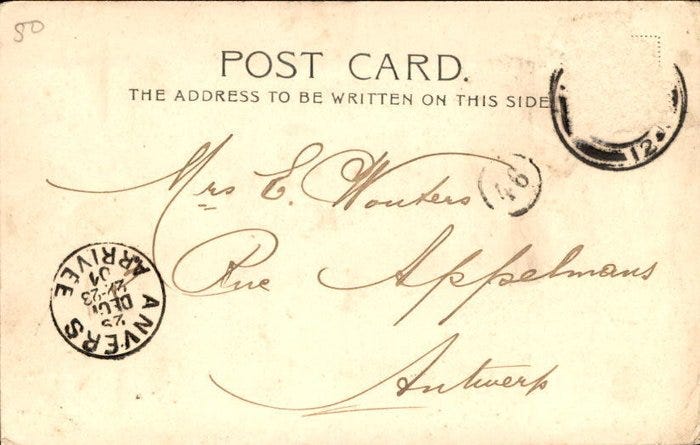 50
POST CARD.
THE ADDRESS TO BE WRITTEN ON THIS SIDE
12
46
Mrs E. Wouters
Rue Appelmans
Antwerp
ANVERS
25
DECE
22-23
04
ARRIVÉE